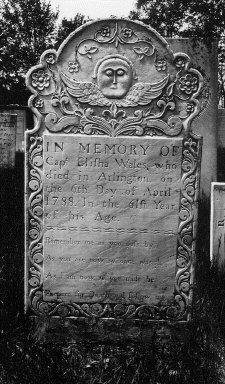 IN MEMORY OF
Capt. Elisha Wales, who
died in Arlington, on
the 6th Day of April
1788. In the 61st Year
of his Age.
Remember me as you pass by
As you are now so once was I
As I am now so you must be
Prepare for Death and follow me